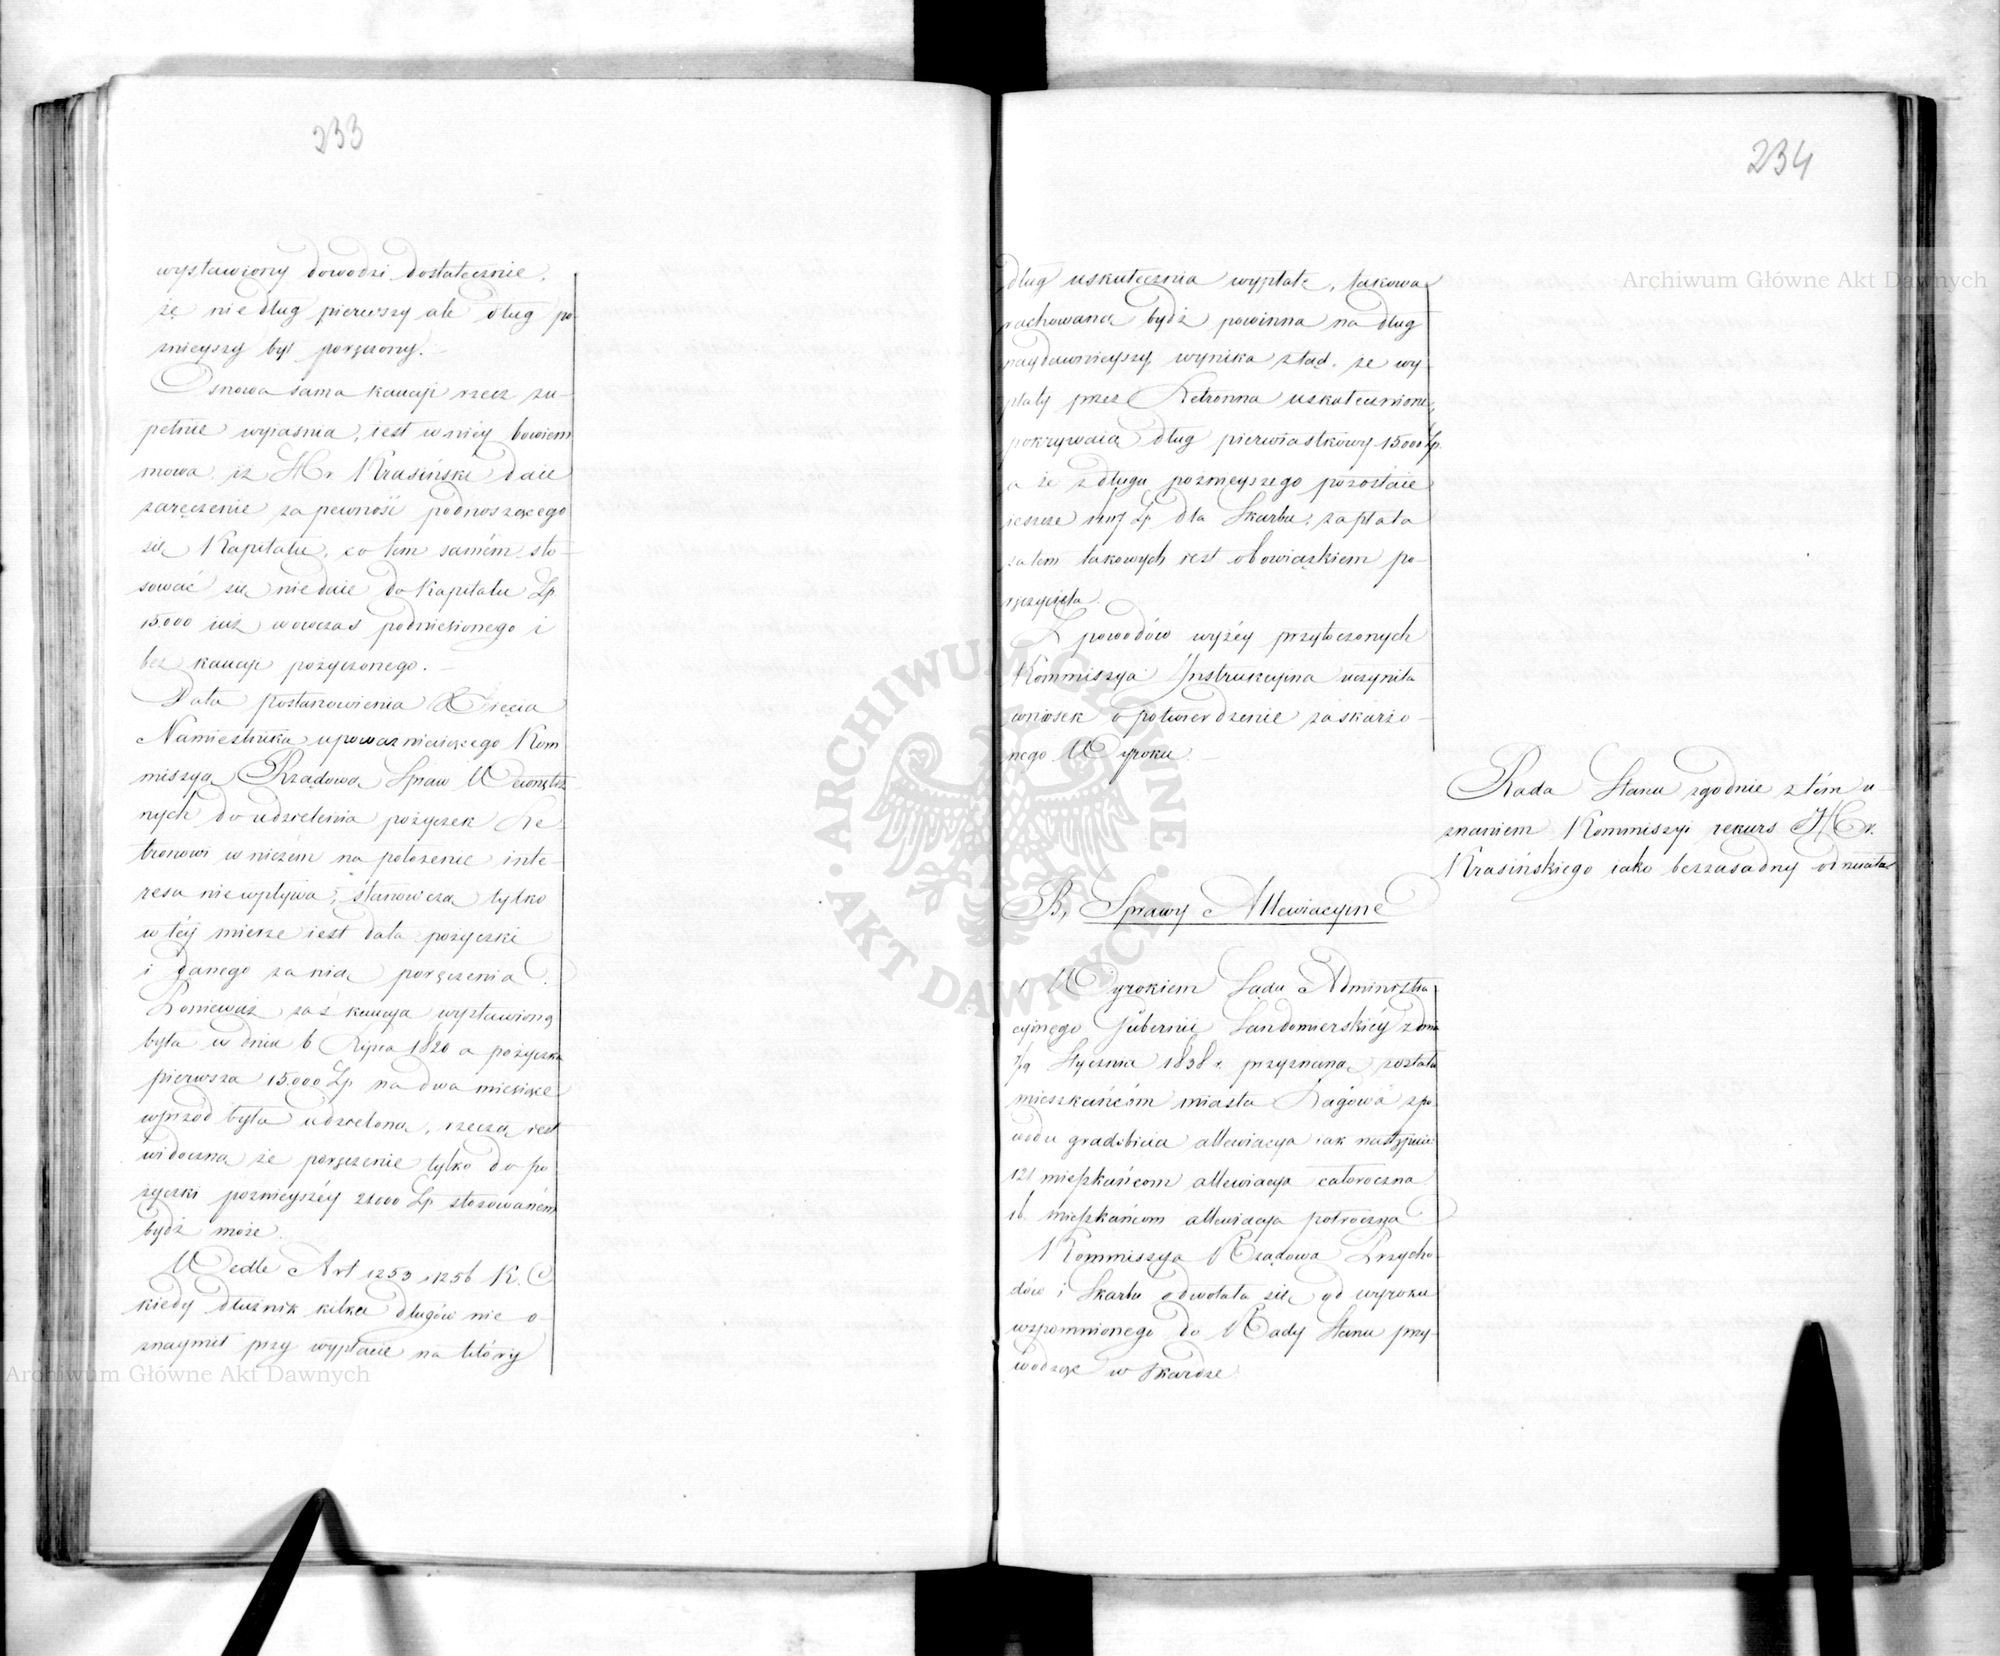 233
wystawiony dowodzi dostatecznie,
że nie dług pierwszy ale dług po
znieyszy był poręczony.
Osnowa sama kaucyi rzecz zu-
pełnie wyiasnia, iest w niéy bowiem
mowa iż Hr Krasiński daie
zaręczenie za pewność podnoszącego
się Kapitału, co tem samém sto-
sować się nie daie do Kapitału Zp
15.000 iuż wowczas podniesionego i
bez kaucyi pożyczonego. –
Data postanowienia Xięcia
Namiestnika upoważniaiącego Kom
missyą Rządową Spraw Wewnętrz
nych do udzielenia pożyczek Le-
tronowi w niczém na położenie inte-
resu nie wpływa; stanowcza tylko
w téy mierze iest data pożyczki
i danego za nią poręczenia.
Ponieważ zaś kaucya wystawioną
była w dniu 6 Lipca 1820 a pożyczka
pierwsza 15.000 Zp na dwa miesiące
wprzód była udzieloną, rzeczą iest
widoczną że poręczenie tylko do po
życzki poznieyszéy 21000 Zp stosowaném
bydź może.
Wedle Art 1253 i 1256 K. C
kiedy dłużnik kilku długów nie o-
znaymił przy wypłacie na który
234
dług uskutecznia wypłatę, takowa
rachowana bydź powinna na dług
naydawnieyszy wynika ztąd, że wy-
płaty przez Letronna uskutecznione,
pokrywaią dług pierwiastkowy 15000 Zp.
a że z długu poznieyszego pozostaie
ieszcze Zp dla Skarbu, zapłata
zatem takowych iest obowiązkiem po-
ręczyciela.
Z powodów wyżéy przytoczonych
Kommissya Instrukcyina uczyniła
wniosek o potwierdzenie zaskarżo-
nego Wyroku –
Rada Stanu zgodnie z tém u-
znaniem Kommissyi rekurs Hr.
Krasińskiego iako bezzasadny odrzuciła
B, Sprawy Allewiacyine
1. Wyrokiem Sądu Administra
cyinego Gubernii Sandomierskiéy z dnia
7/19 Stycznia 1838 r. przyznaną została
mieszkańcóm miasta Łagowa z po-
wodu gradobicia allewiacya iak następuie
121 mieszkańcom allewiacya całoroczna
16. mieszkańcom allewiacya półroczna
Kommissya Rządowa Przycho-
dów i Skarbu odwołała się od wyroku
wspomnionego do Rady Stanu przy-
wodząc w skardze
Archiwum Główne Akt Dawnych
Archiwum Główne Akt Dawnych
ARCHIWUM GŁÓWNE AKT DAWNYCH